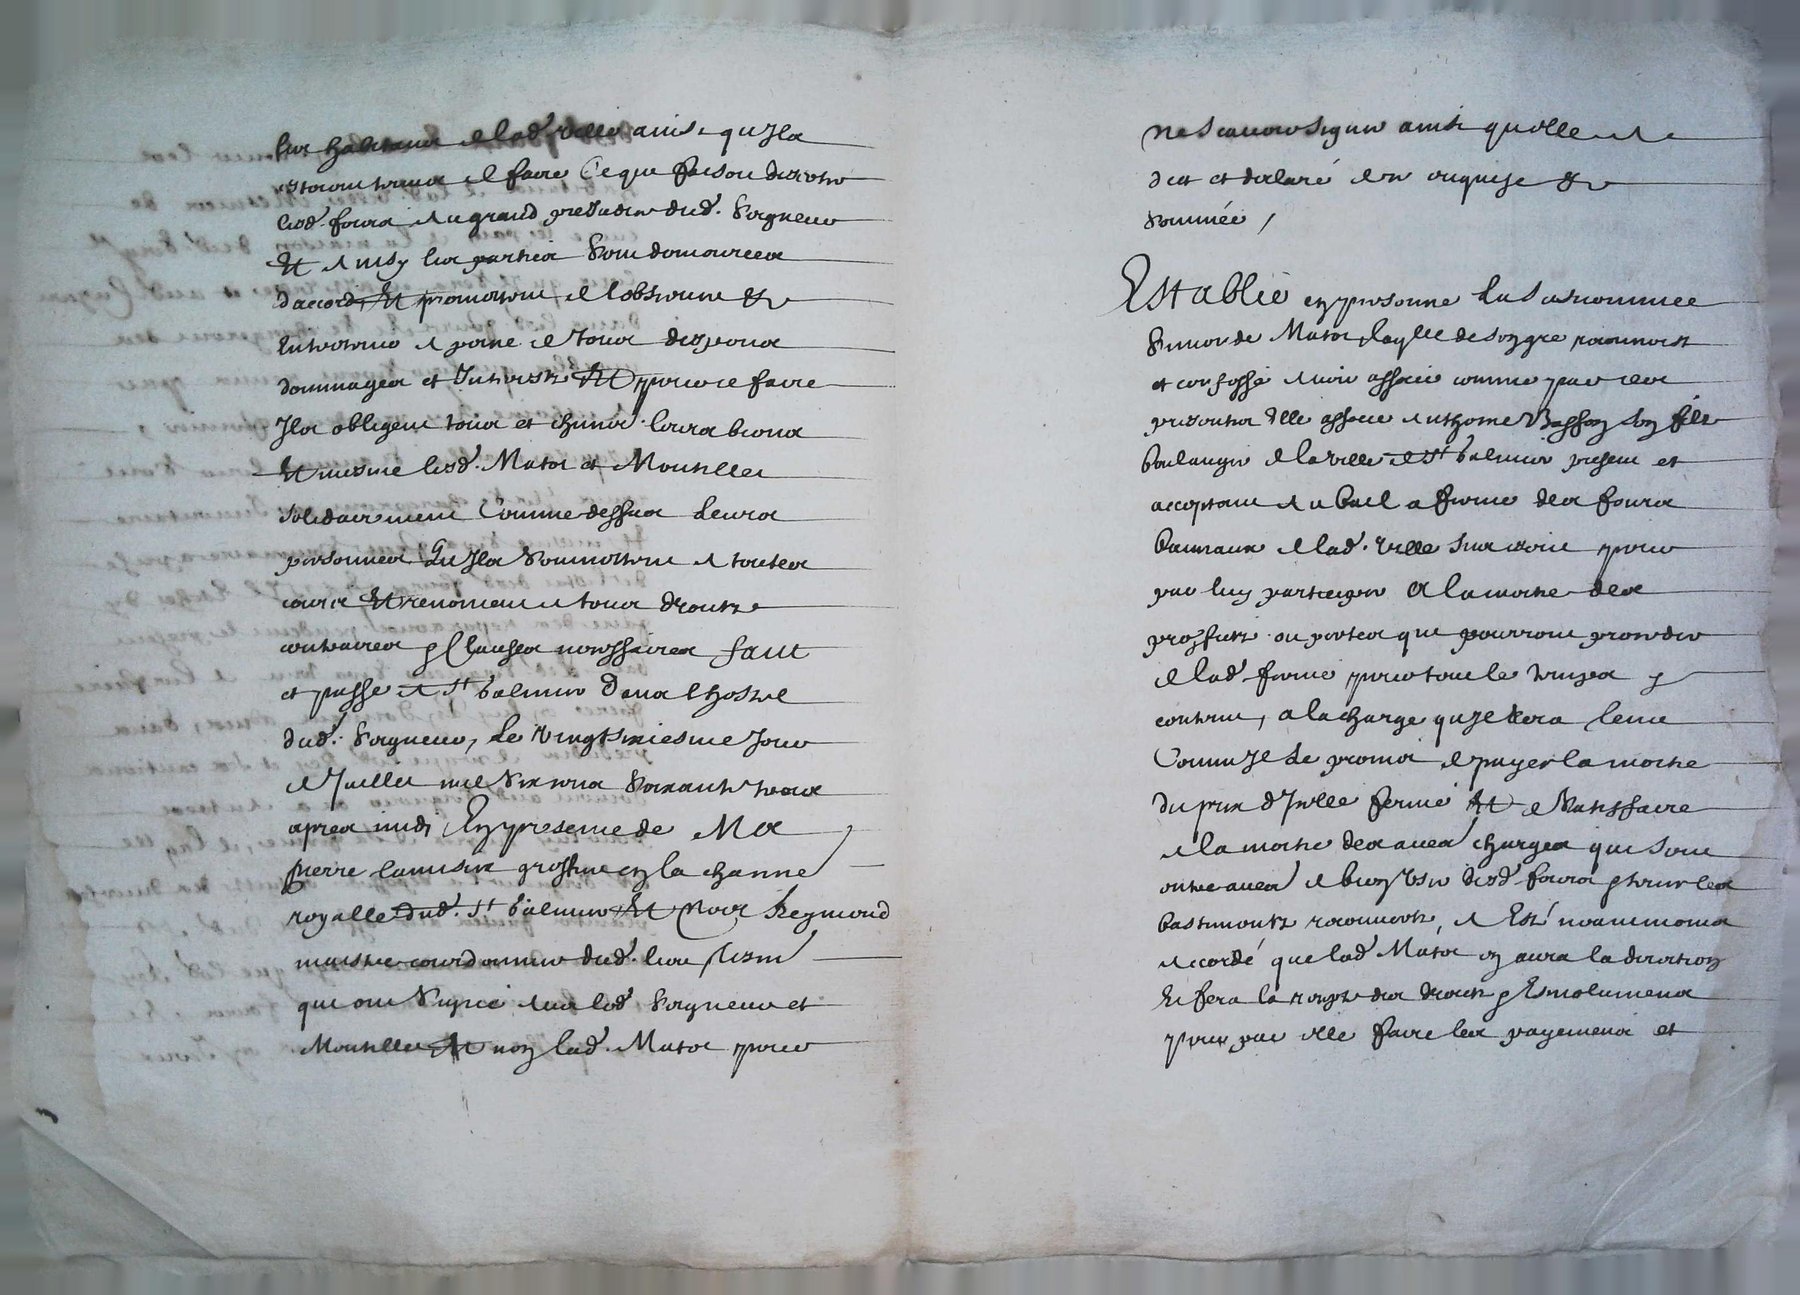 les habitans de lad. ville ainsi qu'Ilz
et faire Ce que faisant
lesd. fours au grand prejudice dud. Seigneur
Et ainsy les parties sont demourees
d'accord Et promettent de l'observer &c
a peine de tous despens
dommages et Interestz Et pour ce faire
Ilz obligent tous et chuns leurs biens
Et mesme lesd. Mator et Montellier
solidairement Comme dessus leurs
personnes qu'Ilz soumettent a toutes
cours Et renoncent a tous droictz
contraires p Clauses necessaires faict
et passé a St Galmier Dans l'hostel
dud. Seigneur, le Vingtsixiesme Jour
de Juillet mil six cens soixante trois
apres midy En presence de Me
Pierre grephier en la chambre
royalle dud. St Galmier Et Noel Reymond
maistre courdonnier dud. lieu
qui ont signé avec led. Seigneur et
Montellier Et non lad. Mator pour
ne scavoir signer ainsi qu'elle a
dict et declaré de ce enquise &
sommée /
Establie en personne la susnommée
Simonde Mator laqlle de son gre recognoist
et confesse avoir associé comme par ces
presentes elle associe Anthoine Besson son filz
boulanger de la ville de St Galmier present et
acceptant au bail a ferme des fours
bannaux de lad. ville susd. pour
par luy participer A la moitié des
proffictz ou pertes que pourront proceder
de lad. ferme pour tout le temps y
contenu, a la charge qu'Il sera tenu
Comme Il le promet de payer la moitié
du prix d'Icelle ferme Et de satisfaire
a la moitié des autres charges qui sont
outre avec de bien user desd. fours
bastimentz a Esté neanmoings
accordé que lad. Mator en aura la direction
Et fera la recepte des droictz & Esmolumens
pour par elle faire les payemens et